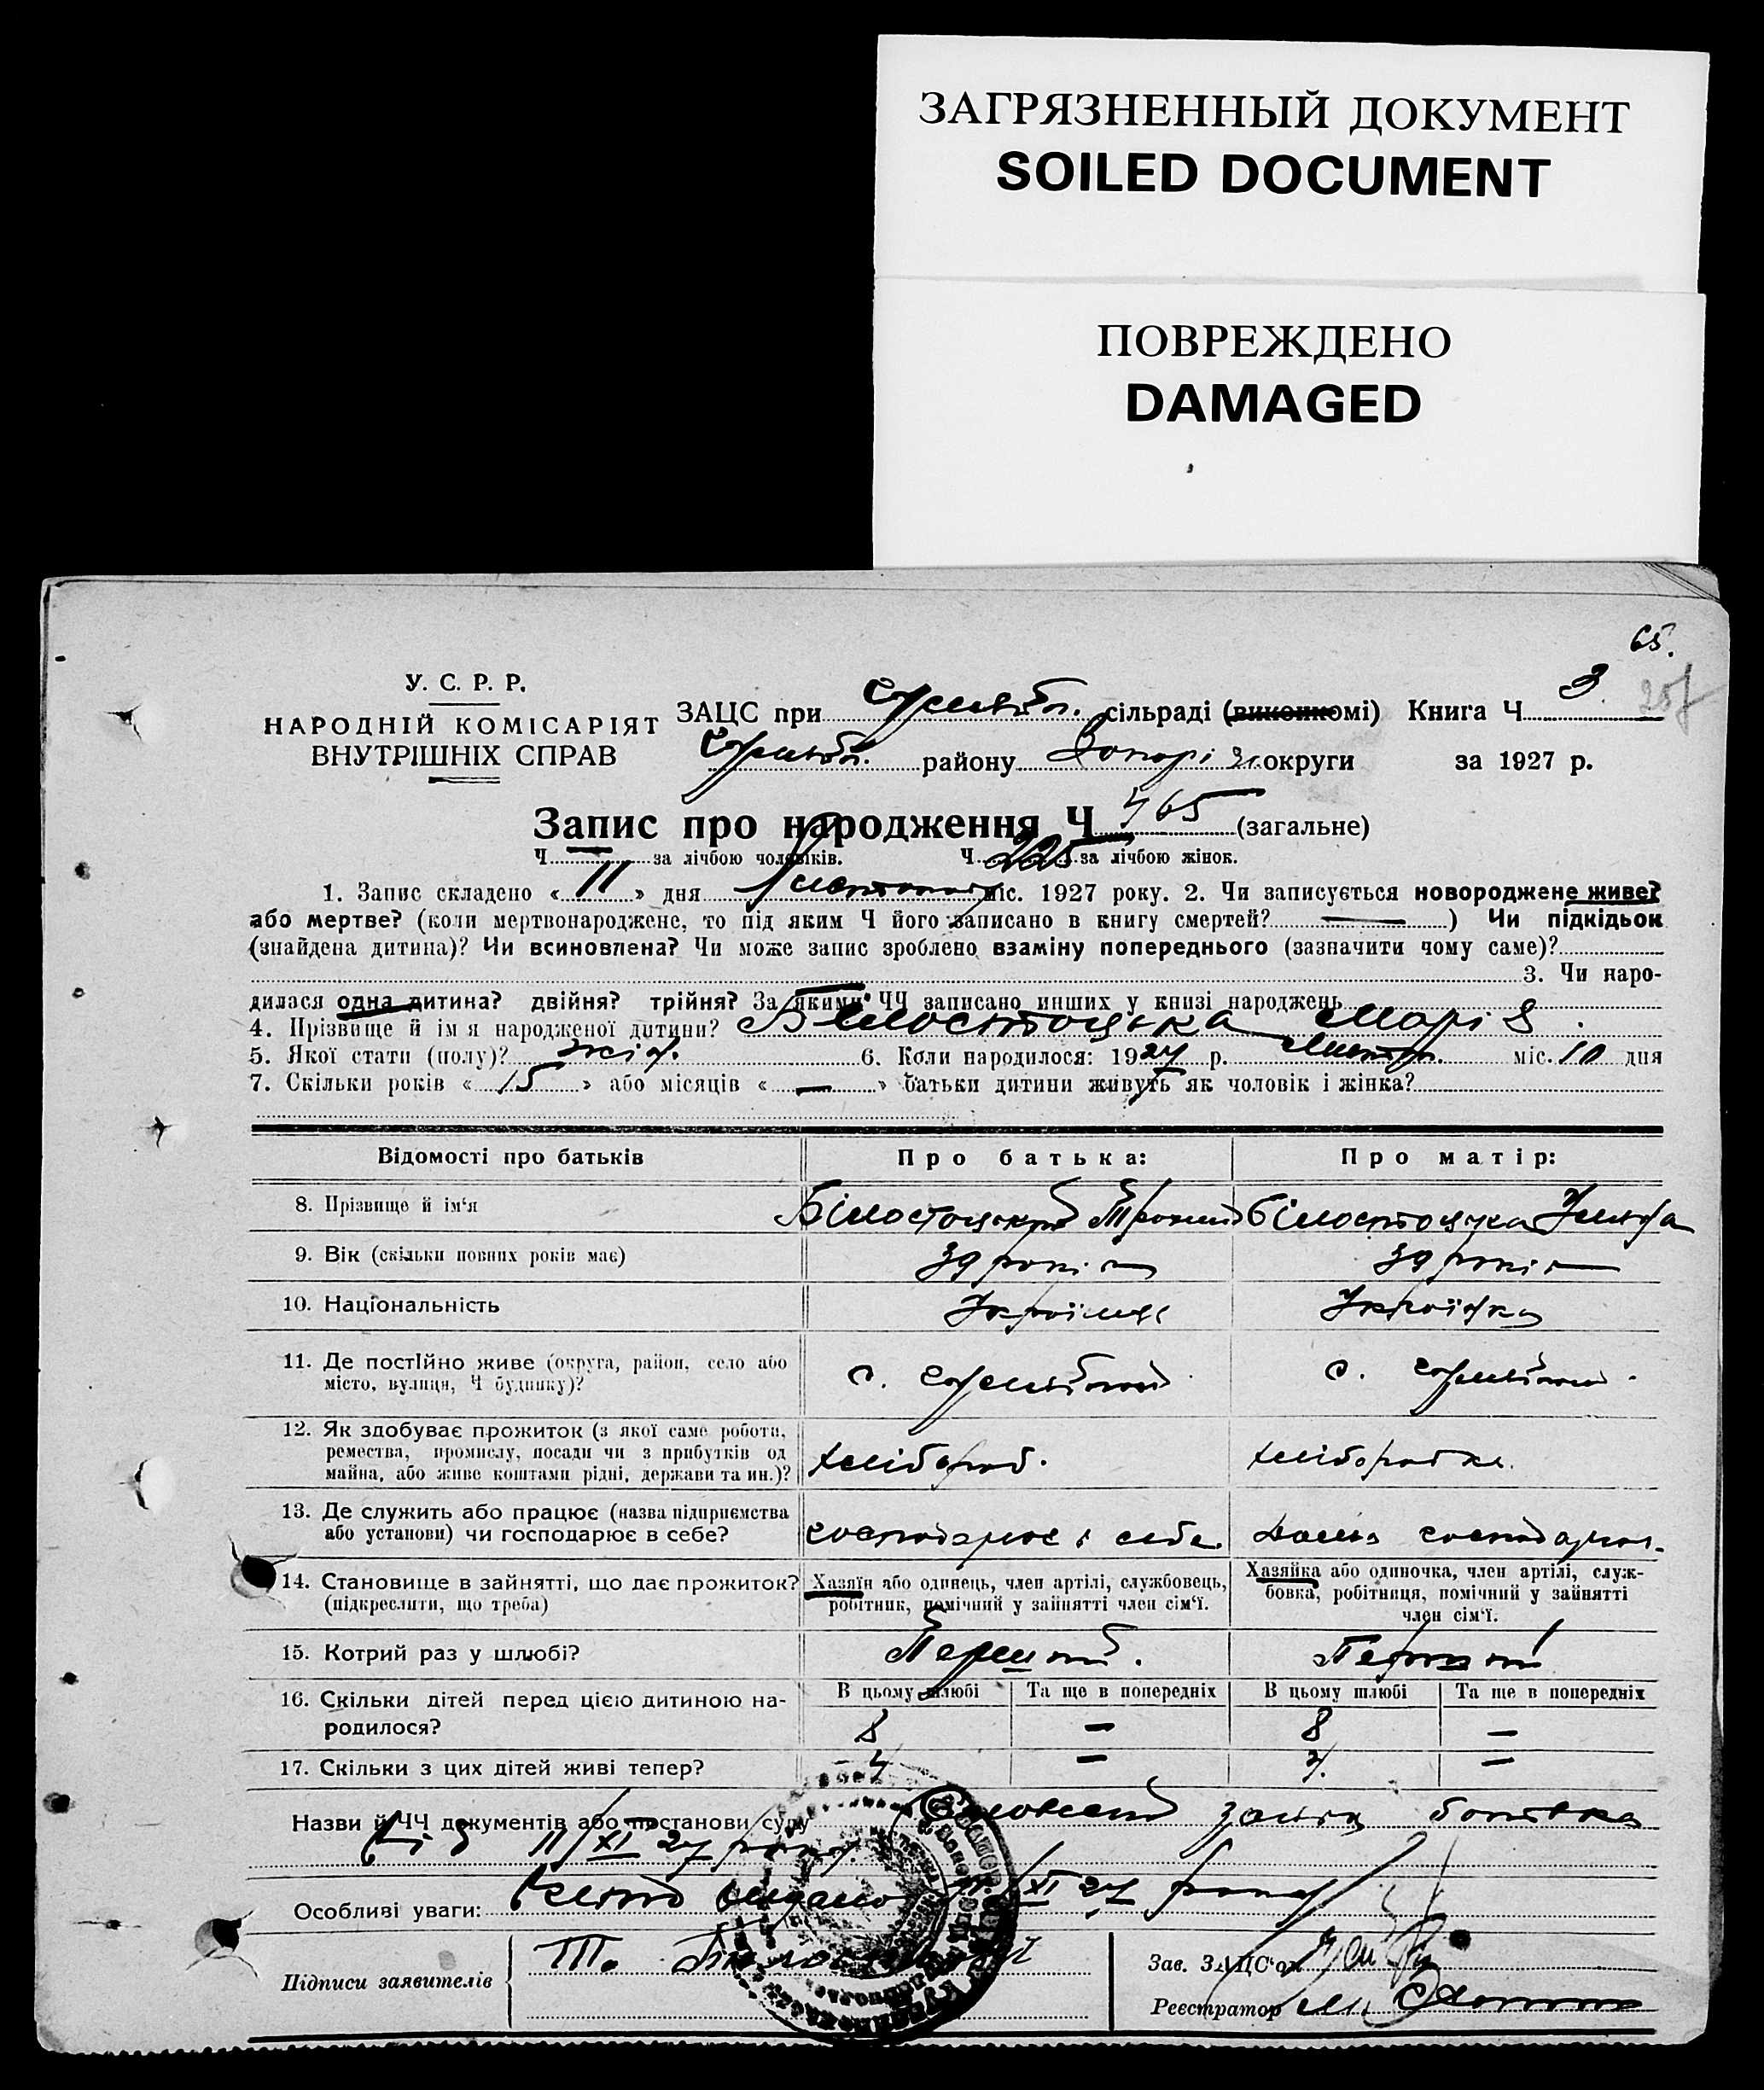 ЗАГРЯЗНЕННЫЙ ДОКУМЕНТ
SOILED DOCUMENT
ПОВРЕЖДЕНО
DAMAGED
65.
У. С. Р. Р.
НАРОДНІЙ КОМІСАРІЯТ
ВНУТРІШНІХ СПРАВ
ЗАЦС при сільраді (виконкомі) Книга Ч 3
району округи за 1927 р.
Запис про народження Ч 465 (загальне)
Ч за лічбою чоловіків. Ч 225 за лічбою жінок.
1. Запис складено « 11 » дня Листопада міс. 1927 року. 2. Чи записується новороджене живе?
або мертве? (коли мертвонароджене, то під яким Ч його записано в книгу смертей? — ) Чи підкідьок
(знайдена дитина)? Чи всиновлена? Чи може запис зроблено взаміну попереднього (зазначити чому саме)?
3. Чи наро-
дилася одна дитина? двійня? трійня? За якими ЧЧ записано инших у книзі народжень
4. Прізвище й ім я народженої дитини? Білостоцька Марія.
5. Якої стати (полу)? жін. 6. Коли народилося: 1927 р. міс. 10 дня
7. Скільки років « 15 » або місяців « — » батьки дитини живуть як чоловік і жінка?
Відомості про батьків Про батька: Про матір:
8. Прізвище й ім‘я Білостоцький Білостоцька
9. Вік (скільки повних років має) 39 років 39 років
10. Національність Українець Українка
11. Де постійно живе (округа, район, село або
місто, вулиця, Ч будинку)? с. с.
12. Як здобуває прожиток (з якої саме роботи,
ремества, промислу, посади чи з прибутків од
майна, або живе коштами рідні, держави та ин.)? хлібороб. хліборобка.
13. Де служить або працює (назва підприємства
або установи) чи господарює в себе? господарює в себе дома господарює
14. Становище в зайнятті, що дає прожиток?
(підкреслити, що треба)
Хазяїн або одинець, член артілі, службовець,
робітник, помічний у зайнятті член сім‘ї.
Хазяйка або одиночка, член артілі, служ-
бовка, робітниця, помічний у зайнятті
член сім‘ї.
15. Котрий раз у шлюбі? Перший. Перший
16. Скільки дітей перед цією дитиною на-
родилося?
В цьому шлюбі Та ще в попередніх В цьому шлюбі Та ще в попередніх
8 — 8 —
17. Скільки з цих дітей живі тепер? 4 — 4. —
Назви й ЧЧ документів або постанови суду Словесна заява батька
від 11/XI 27 року.
Особливі уваги: видано 11/XI 27 року
Підписи заявителів Т.
Зав. ЗАЦС‘ом
Реєстратор